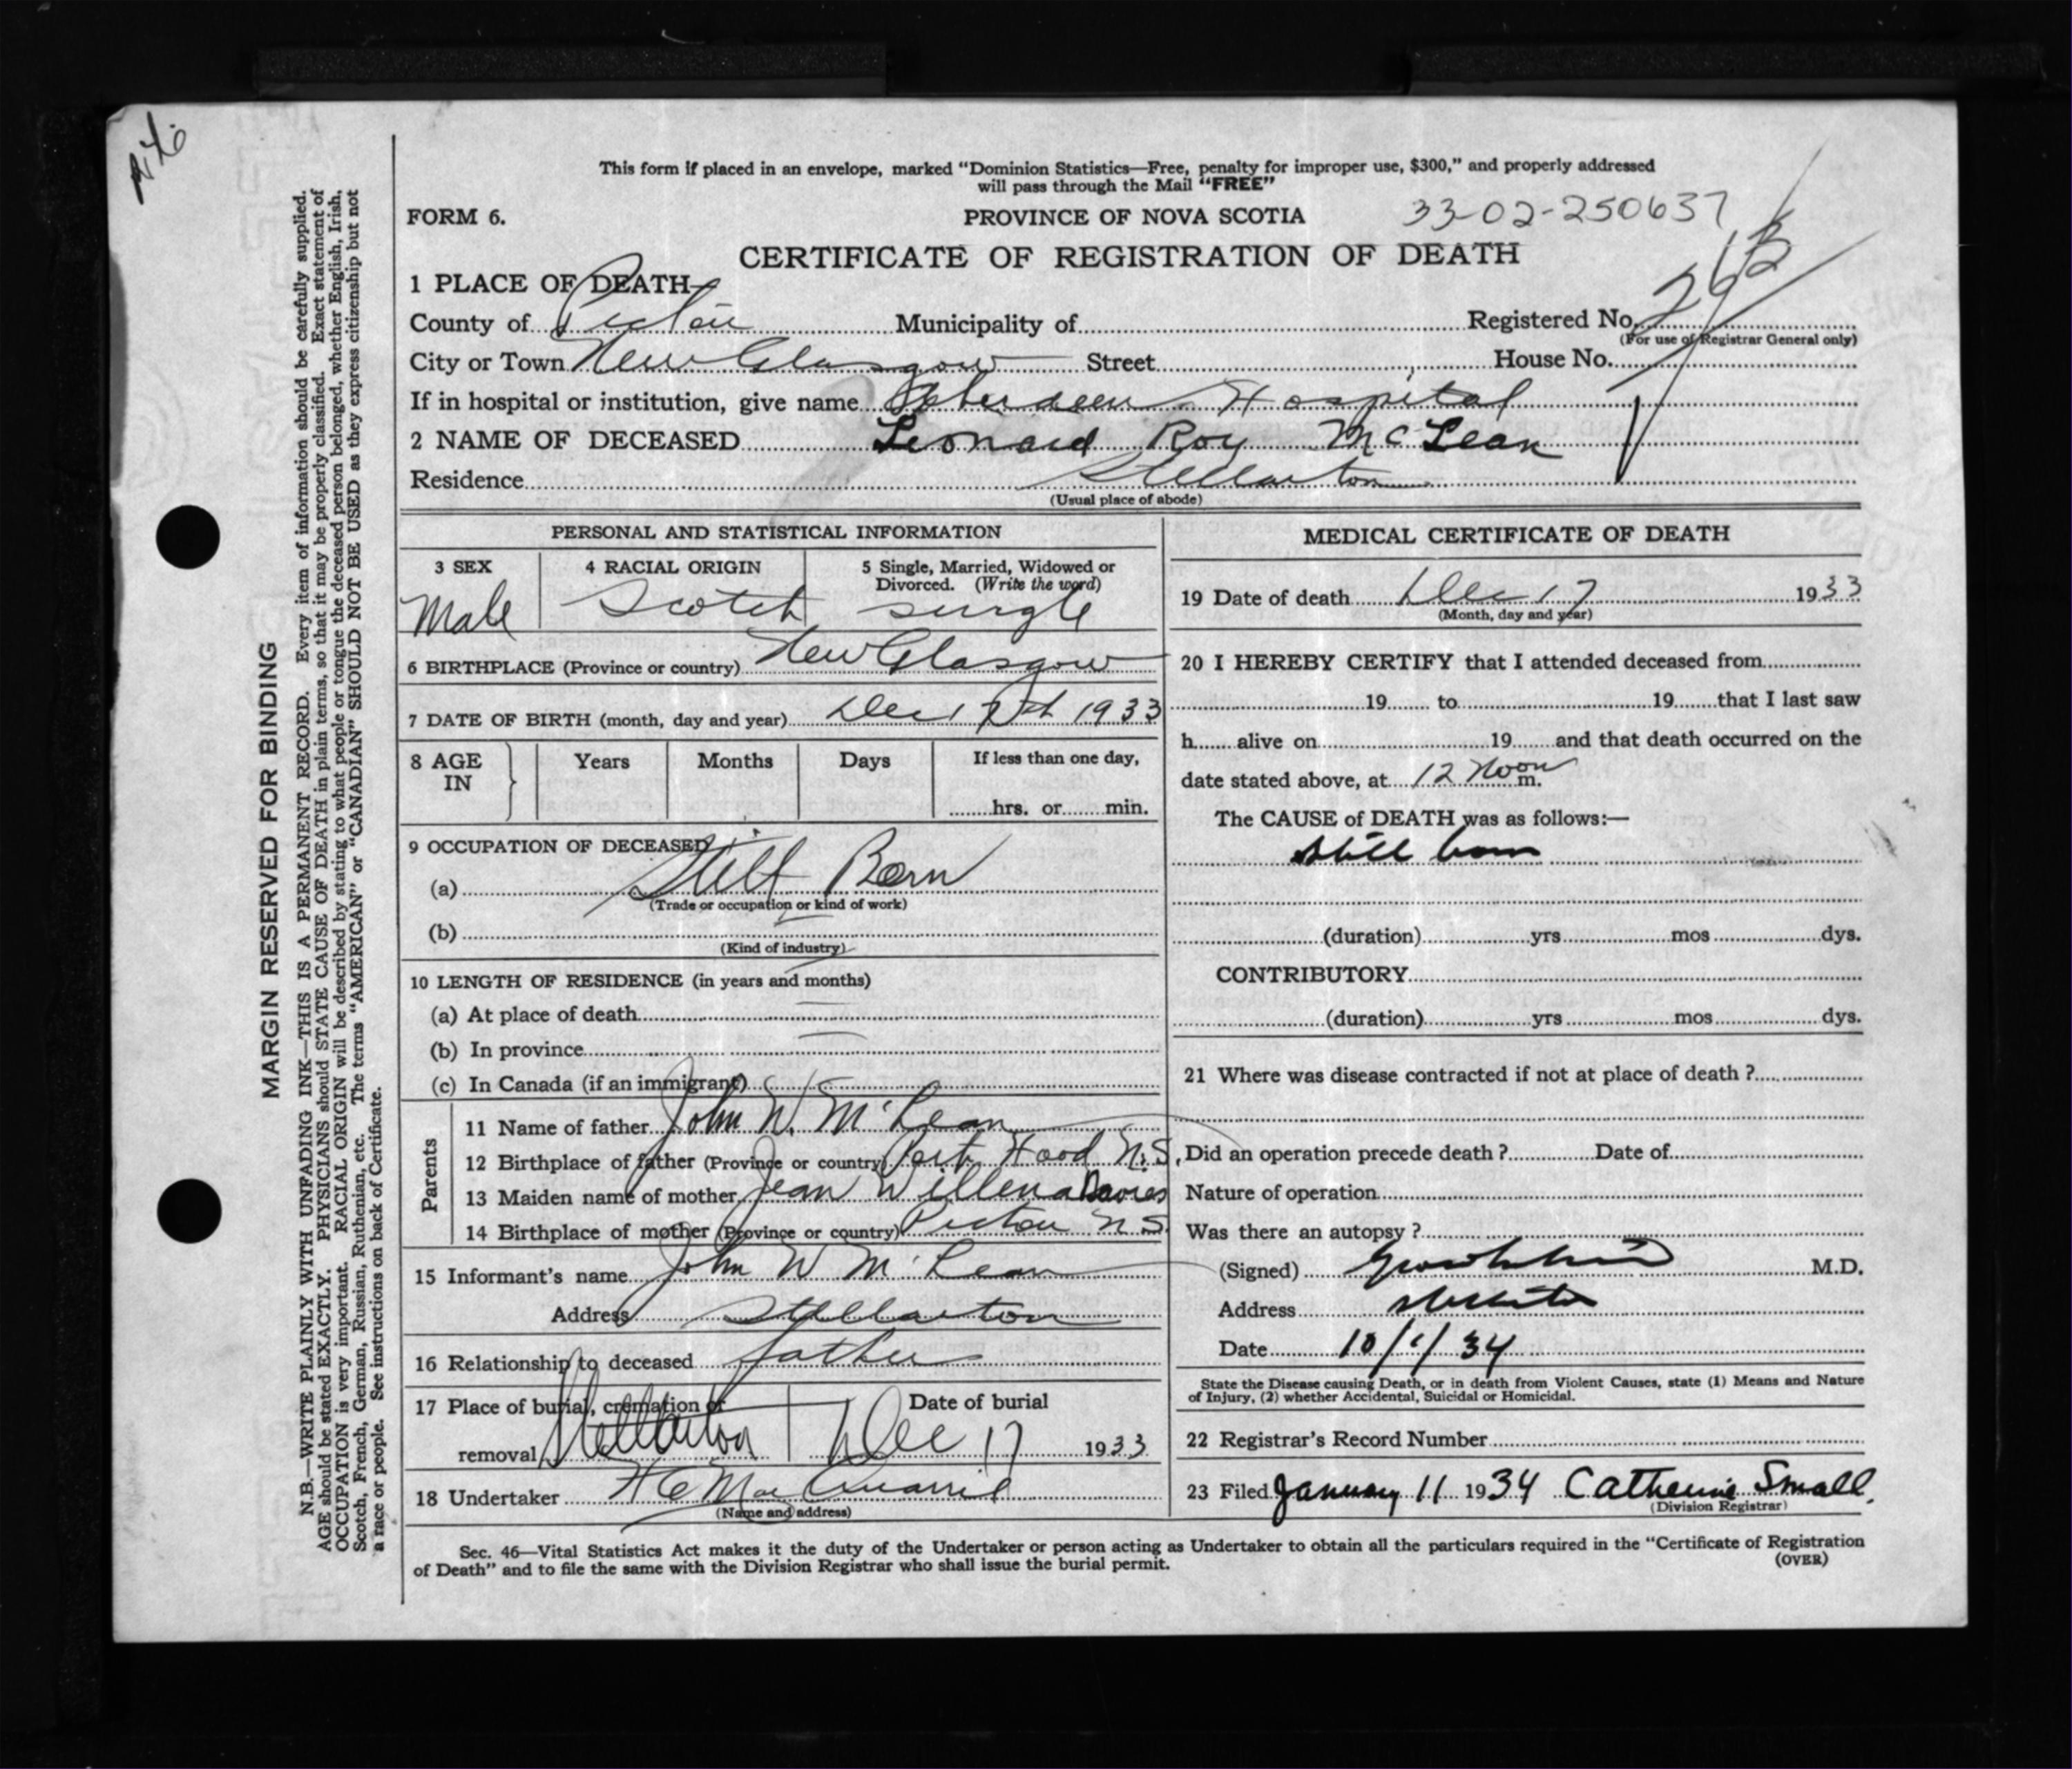 This form if placed in an envelope, marked "Dominion Statistics—Free, penalty for improper use, $300," and properly addressed
will pass through the Mail "FREE"
FORM 6.
PROVINCE OF NOVA SCOTIA
33-02-250637
CERTIFICATE OF REGISTRATION OF DEATH
1 PLACE OF DEATH—
County of Pictou Municipality of Registered No. 263
(For use of Registrar General only)
City or Town New Glasgow Street House No.
If in hospital or institution, give name Aberdeen Hospital
2 NAME OF DECEASED Leonard Roy McLean
Residence Stellarton
(Usual place of abode)
PERSONAL AND STATISTICAL INFORMATION
3 SEX
Male
4 RACIAL ORIGIN
Scotch
5 Single, Married, Widowed or
Divorced. (Write the word)
single
6 BIRTHPLACE (Province or country) New Glasgow
7 DATE OF BIRTH (month, day and year) Dec 17th 1933
8 AGE IN
Years Months Days If less than one day,
hrs. or min.
9 OCCUPATION OF DECEASED
(a) Still Born
(Trade or occupation or kind of work)
(b)
(Kind of industry)
10 LENGTH OF RESIDENCE (in years and months)
(a) At place of death
(b) In province
(c) In Canada (if an immigrant)
Parents
11 Name of father John W. McLean
12 Birthplace of father (Province or country) Port Hood N.S.
13 Maiden name of mother Jean Willena Davies
14 Birthplace of mother (Province or country) Pictou N.S.
15 Informant's name John W McLean
Address Stellarton
16 Relationship to deceased father
17 Place of burial, cremation or
removal Stellarton
Date of burial
Dec 17 1933
18 Undertaker H C MacQuarrie
(Name and address)
MEDICAL CERTIFICATE OF DEATH
19 Date of death Dec 17 1933
(Month, day and year)
20 I HEREBY CERTIFY that I attended deceased from
19 to 19 that I last saw
h alive on 19 and that death occurred on the
date stated above, at 12 Noon m.
The CAUSE of DEATH was as follows:—
still born
(duration) yrs mos dys.
CONTRIBUTORY
(duration) yrs mos dys.
21 Where was disease contracted if not at place of death ?
Did an operation precede death ? Date of
Nature of operation
Was there an autopsy ?
(Signed) M.D.
Address
Date 10/1/34
State the Disease causing Death, or in death from Violent Causes, state (1) Means and Nature
of Injury, (2) whether Accidental, Suicidal or Homicidal.
22 Registrar's Record Number
23 Filed January 11 1934 Catherine Small.
(Division Registrar)
Sec. 46—Vital Statistics Act makes it the duty of the Undertaker or person acting as Undertaker to obtain all the particulars required in the "Certificate of Registration
of Death" and to file the same with the Division Registrar who shall issue the burial permit.
(OVER)
MARGIN RESERVED FOR BINDING
N.B.—WRITE PLAINLY WITH UNFADING INK—THIS IS A PERMANENT RECORD. Every item of information should be carefully supplied.
AGE should be stated EXACTLY. PHYSICIANS should STATE CAUSE OF DEATH in plain terms, so that it may be properly classified. Exact statement of
OCCUPATION is very important. RACIAL ORIGIN will be described by stating to what people or tongue the deceased person belonged, whether English, Irish,
Scotch, French, German, Russian, Ruthenian, etc. The terms "AMERICAN" or "CANADIAN" SHOULD NOT BE USED as they express citizenship but not
a race or people. See instructions on back of Certificate.